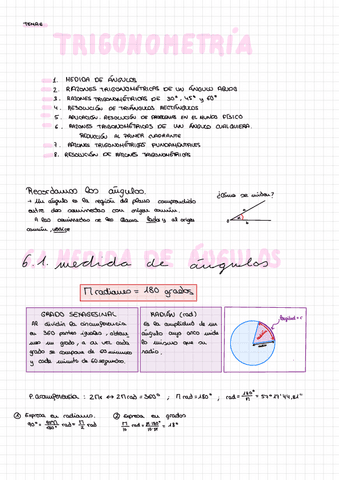 TEMA 6
TRIGONOMETRÍA
1. MEDIDA DE ÁNGULOS
2. RAZONES TRIGONOMÉTRICAS DE UN ÁNGULO AGUDO
3. RAZONES TRIGONOMÉTRICAS DE 30°, 45° y 60°
4. RESOLUCIÓN DE TRIÁNGULOS RECTÁNGULOS
5. APLICACIÓN. RESOLUCIÓN DE PROBLEMAS EN EL MUNDO FÍSICO
6. RAZONES TRIGONOMÉTRICAS DE UN ÁNGULO CUALQUIERA.
REDUCCIÓN AL PRIMER CUADRANTE
7. RAZONES TRIGONOMÉTRICAS FUNDAMENTALES
8. RESOLUCIÓN DE RAZONES TRIGONOMÉTRICAS
Recordamos los ángulos.
→ Un ángulo es la región del plano comprendida
entre dos semirrectas con origen común.
A las semirrectas se les llama lado y al origen
común, vértice
¿Cómo se miden?
6.1. medida de ángulos
Π radianes = 180 grados
GRADO SEXAGESIMAL
Al dividir la circunferencia
en 360 partes iguales, obtenemos
un grado, a su vez cada
grado se compone de 60 minutos
y cada minuto de 60 segundos.
RADIÁN (rad)
Es la amplitud de un
ángulo cuyo arco mide
lo mismo que su
radio.
longitud = r
P. circunferencia : 2Πr ↔ 2Π rad = 360° ; Π rad = 180° ; rad = 180°/Π = 57° 17' 44,81"
① Expresa en radianes.
90° = 90Π/180° rad = Π/2 rad
② Expresa en grados
Π/10 rad = Π·180°/10·Π = 18°